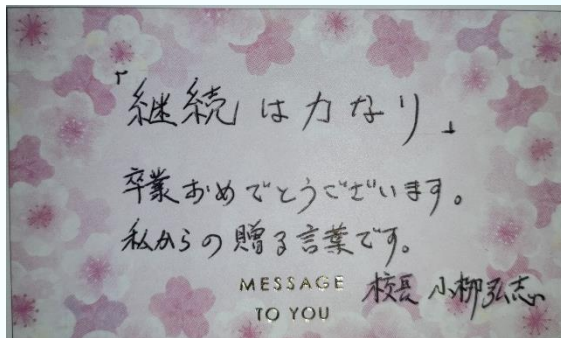 「継続は力なり」
卒業おめでとうございます。
私からの贈る言葉です。
MESSAGE
TO YOU
校長 小柳弘志